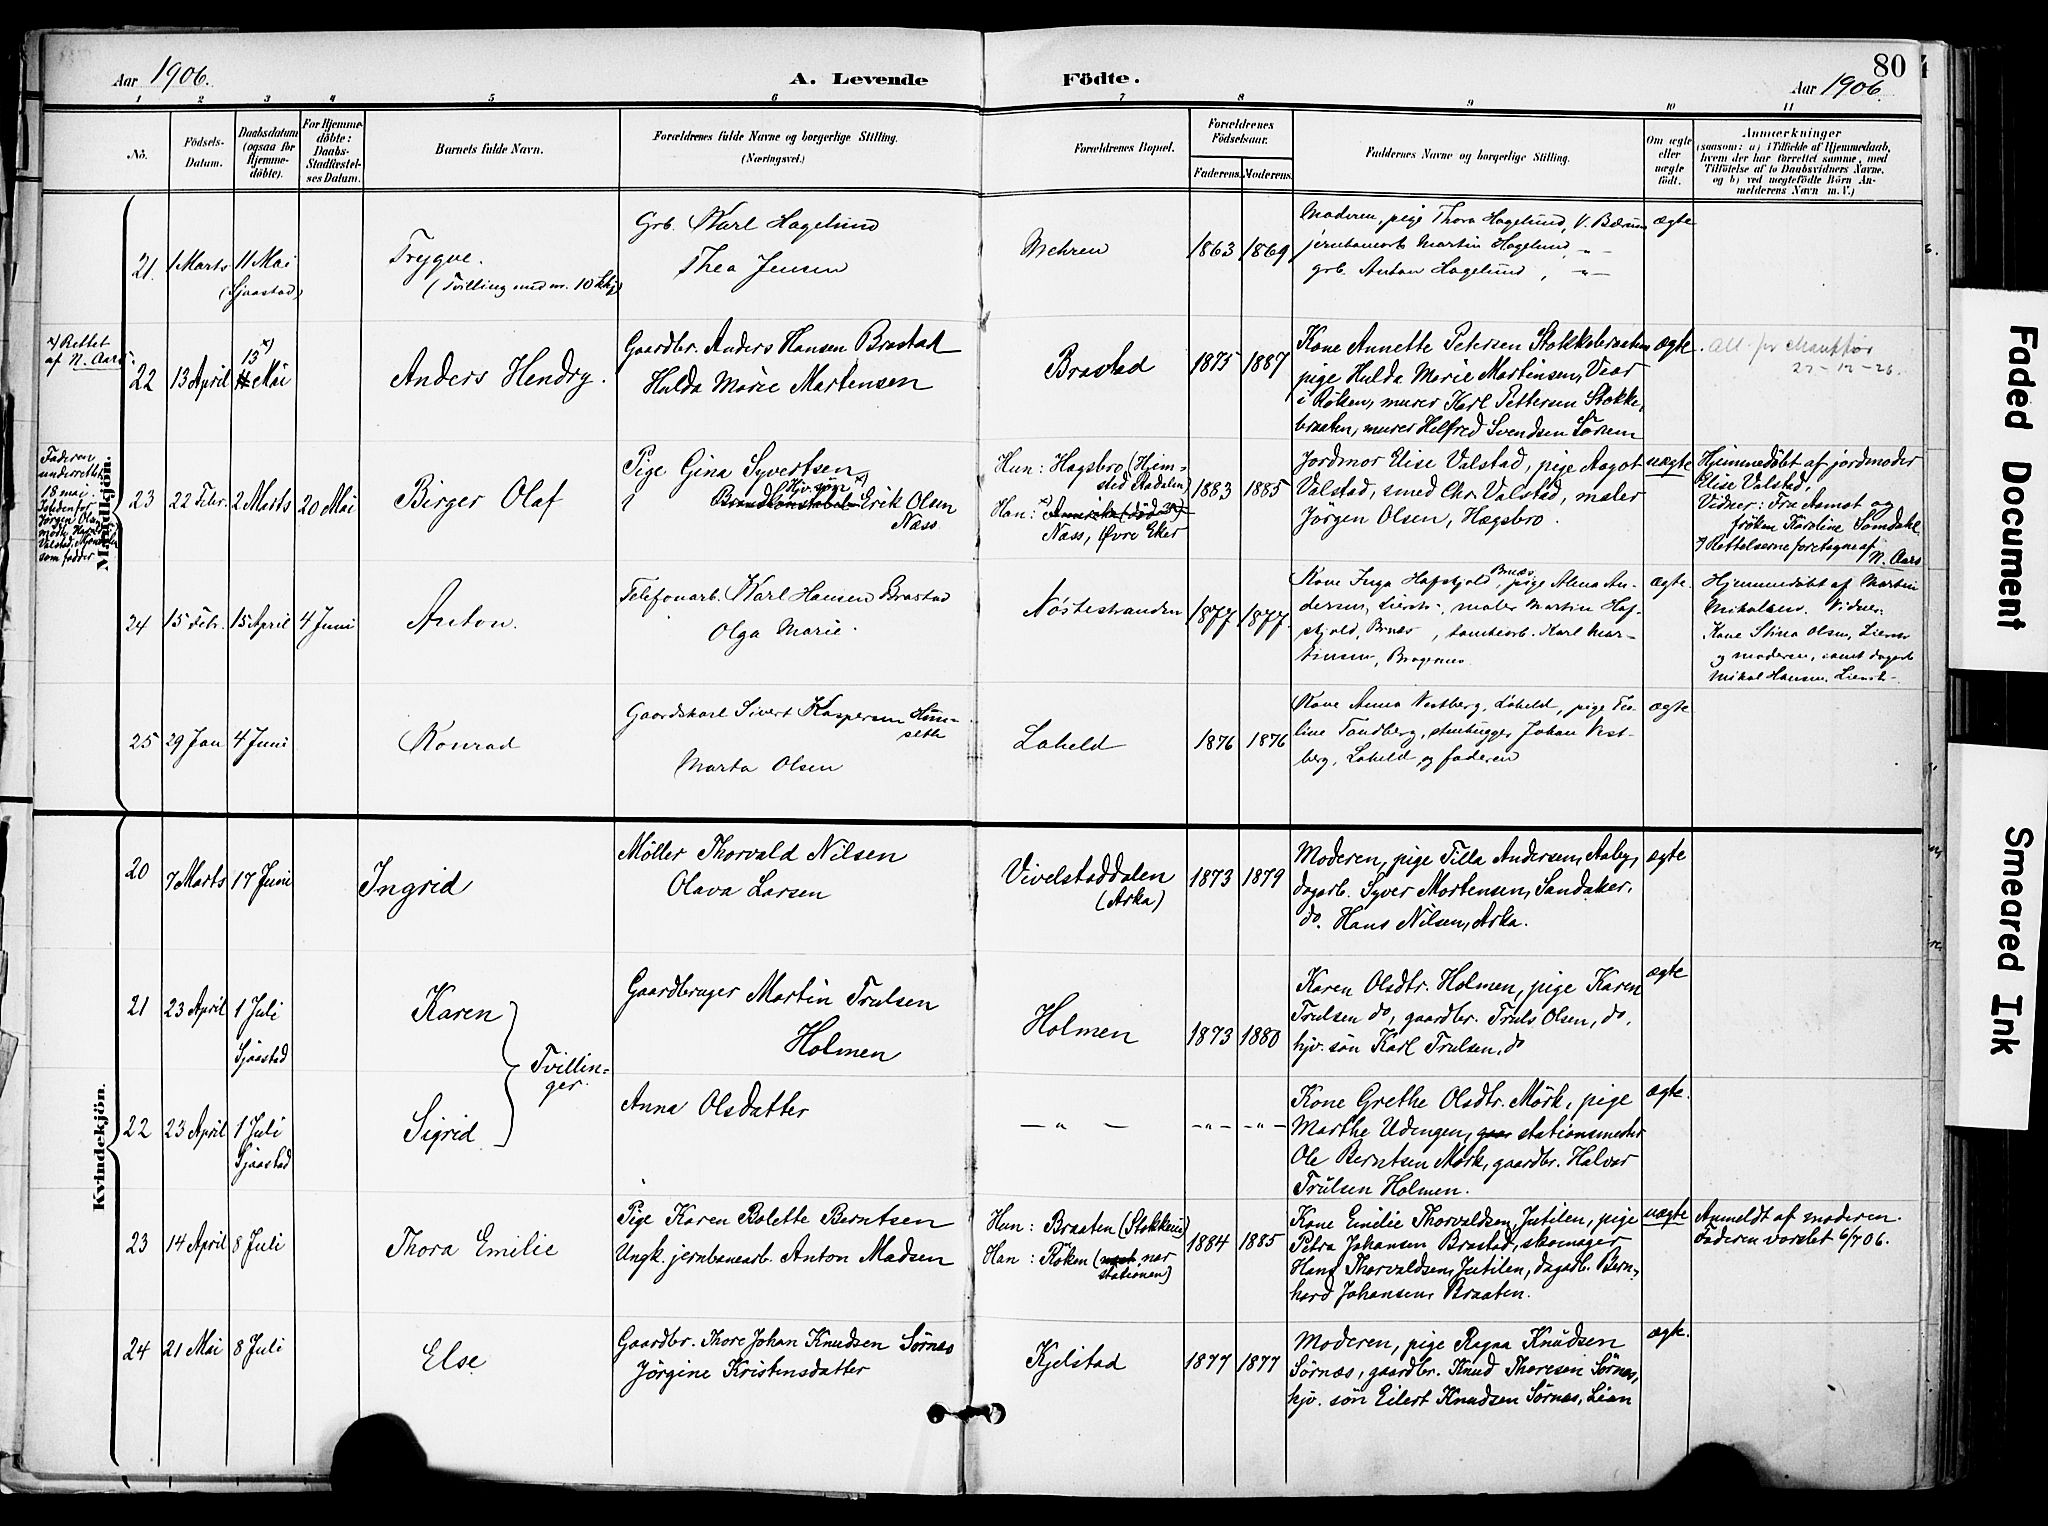 80
Aar 1906.
A. Levende
Födte.
Aar 1906.
1 2 3 4 5 6 7 8 9 10 11
Nö.
Födsels-Datum.
Daabsdatum (ogsaa for Hjemme-döbte).
For Hjemme-döbte: Daabs-Stadfæstel-ses Datum.
Barnets fulde Navn.
Forældrenes fulde Navne og borgerlige Stilling.
(Næringsvei.)
Forældrenes Bopæl.
Forældrenes Födselsaar.
Faderens. Moderens.
Faddernes Navne og borgerlige Stilling.
Om ægte eller uægte födt.
Anmærkninger
(saasom: a) i Tilfælde af Hjemmedaab,
hvem der har forrettet samme, med
Tilföielse af to Daabsvidners Navne.
og b) ved uægtefödte Börn An-
melderens Navn m. V.)
Mandkjön.
21. 1 Marts 11 Mai (Sjaastad)
Trygve.
(Tvilling med nr. 10 kkj)
Grb. Karl Hagelund
Thea Jensen
Mehren
1863 1869
Moderen, pige Thora Hagelund, V. Bærum
jernbanearb Martin Hagelund, -"-
grb. Anton Hagelund, -"-
ægte
*) Rettet
af N. Aars.
22 13 April 13 *) Mai
Anders Hendry.
Gaardbr. Anders Hansen Brastad
Hulda Marie Martensen
Brastad
1875 1887
Kone Annette Petersen Stokkebraaten
pige Hulda Marie Martinsen, Viar
i Røken, murer Karl Pettersen Stokke,
braaten, murer Hilfred Svendsen Sørum
ægte.
22-12-26.
Faderen
underrettet
18 mai
Jörgen Olsen
Valstad,
som fadder
23 22 Febr. 2 Marts 20 Mai
Birger Olaf
Pige Gina Syvertsen
? Brandkonstabel Hjv. søn *) Erik Olsen
Næss
Hun: Hagsbro (Hjem-
sted Aadalen)
Han: *) Amerika (död 30)
Næss, Øvre Eker
1883 1885
Jordmor Elise Valstad, pige Aagot
Valstad, smed Chr. Valstad, maler
Jörgen Olsen, Hægsbro.
uægte
Hjemmedøbt af jordmoder
Elise Valstad.
Vidner: Fru Aamot og
frøken Karoline Semdahl
*) Rettelserne foretagne af
N. Aars
24 15 Febr. 15 April 4 Juni
Anton.
Telefonarb. Karl Hansen Brastad
Olga Marie.
Nöstestranden
1877 1877.
Kone Inga Hafskjold, Bræs, pige Alma An-
dersen, Lierst-, maler Martin Haf-
skjold, Bræs, tomtearb. Karl Mar-
tinsen, Bragernes.
ægte.
Hjemmedøbt af Martin
Mikalsen. Vidner:
Kone Stina Olsen, Lierst
og moderen, samt dagarb
Mikal Hansen, Lierst-.
25 29 Jan 4 Juni
Konrad
Gaardskarl Sivert Kaspersen Hun-
seth
Marta Olsen
Laheld
1876 1876
Kone Anna Vestberg, Laheld, pige Tea-
line Tandberg, stenhugger Johan Vest-
berg, Laheld, og faderen
ægte
Kvindekjön.
20 7 Marts 17 Juni
Ingrid
Møller Thorvald Nilsen
Olava Larsen
Vivelstaddalen
(Arka)
1873 1879
Moderen, pige Tilla Andersen, Aaby,
dagarb. Syver Mortensen, Sandaker,
do. Hans Nilsen, Arka.
ægte
21 23 April 1 Juli Sjaastad
Karen
Tvillin-
ger.
Gaardbruger Martin Trulsen
Holmen
Holmen
1873 1880
Karen Olsdtr. Holmen, pige Karen
Trulsen do, gaardbr. Truls Olsen, do,
hjv. søn Karl Trulsen, do
ægte
22 23 April 1 Juli Sjaastad
Sigrid
Anna Olsdatter
— " — — " — — " —
Kone Grethe Olsdtr. Mörk, pige
Marthe Udengen, gaar stationsmester
Ole Berntsen Mørk, gaardbr. Halvor
Trulsen Holmen.
ægte.
23 14 April 8 Juli
Thora Emilie
Pige Karen Bolette Berntsen
Ungk. jernbanearb. Anton Madsen
Hun: Braaten (Stokkerin)
Han: Röken (nær
stationen)
1884 1885
Kone Emilie Thorvaldsen Jutilen, pige
Petra Johansen Brastad, skomager
Hans Thorvaldsen, Jutilen, dagarb. Bern-
hard Johansen, Braaten.
uægte
Anmeldt af moderen.
Faderen varslet 6/7 06.
24 21 Mai 8 Juli
Else
Gaardbr. Thore Johan Knudsen Sörnæs
Jörgine Kristensdatter
Kjelstad
1877 1877
Moderen, pige Ragna Knudsen
Sörnæs, gaardbr. Knud Thoresen Sörnæs,
hjv. søn Eilert Knudsen Sörnæs, Lian
ægte.
Faded Document
Smeared Ink